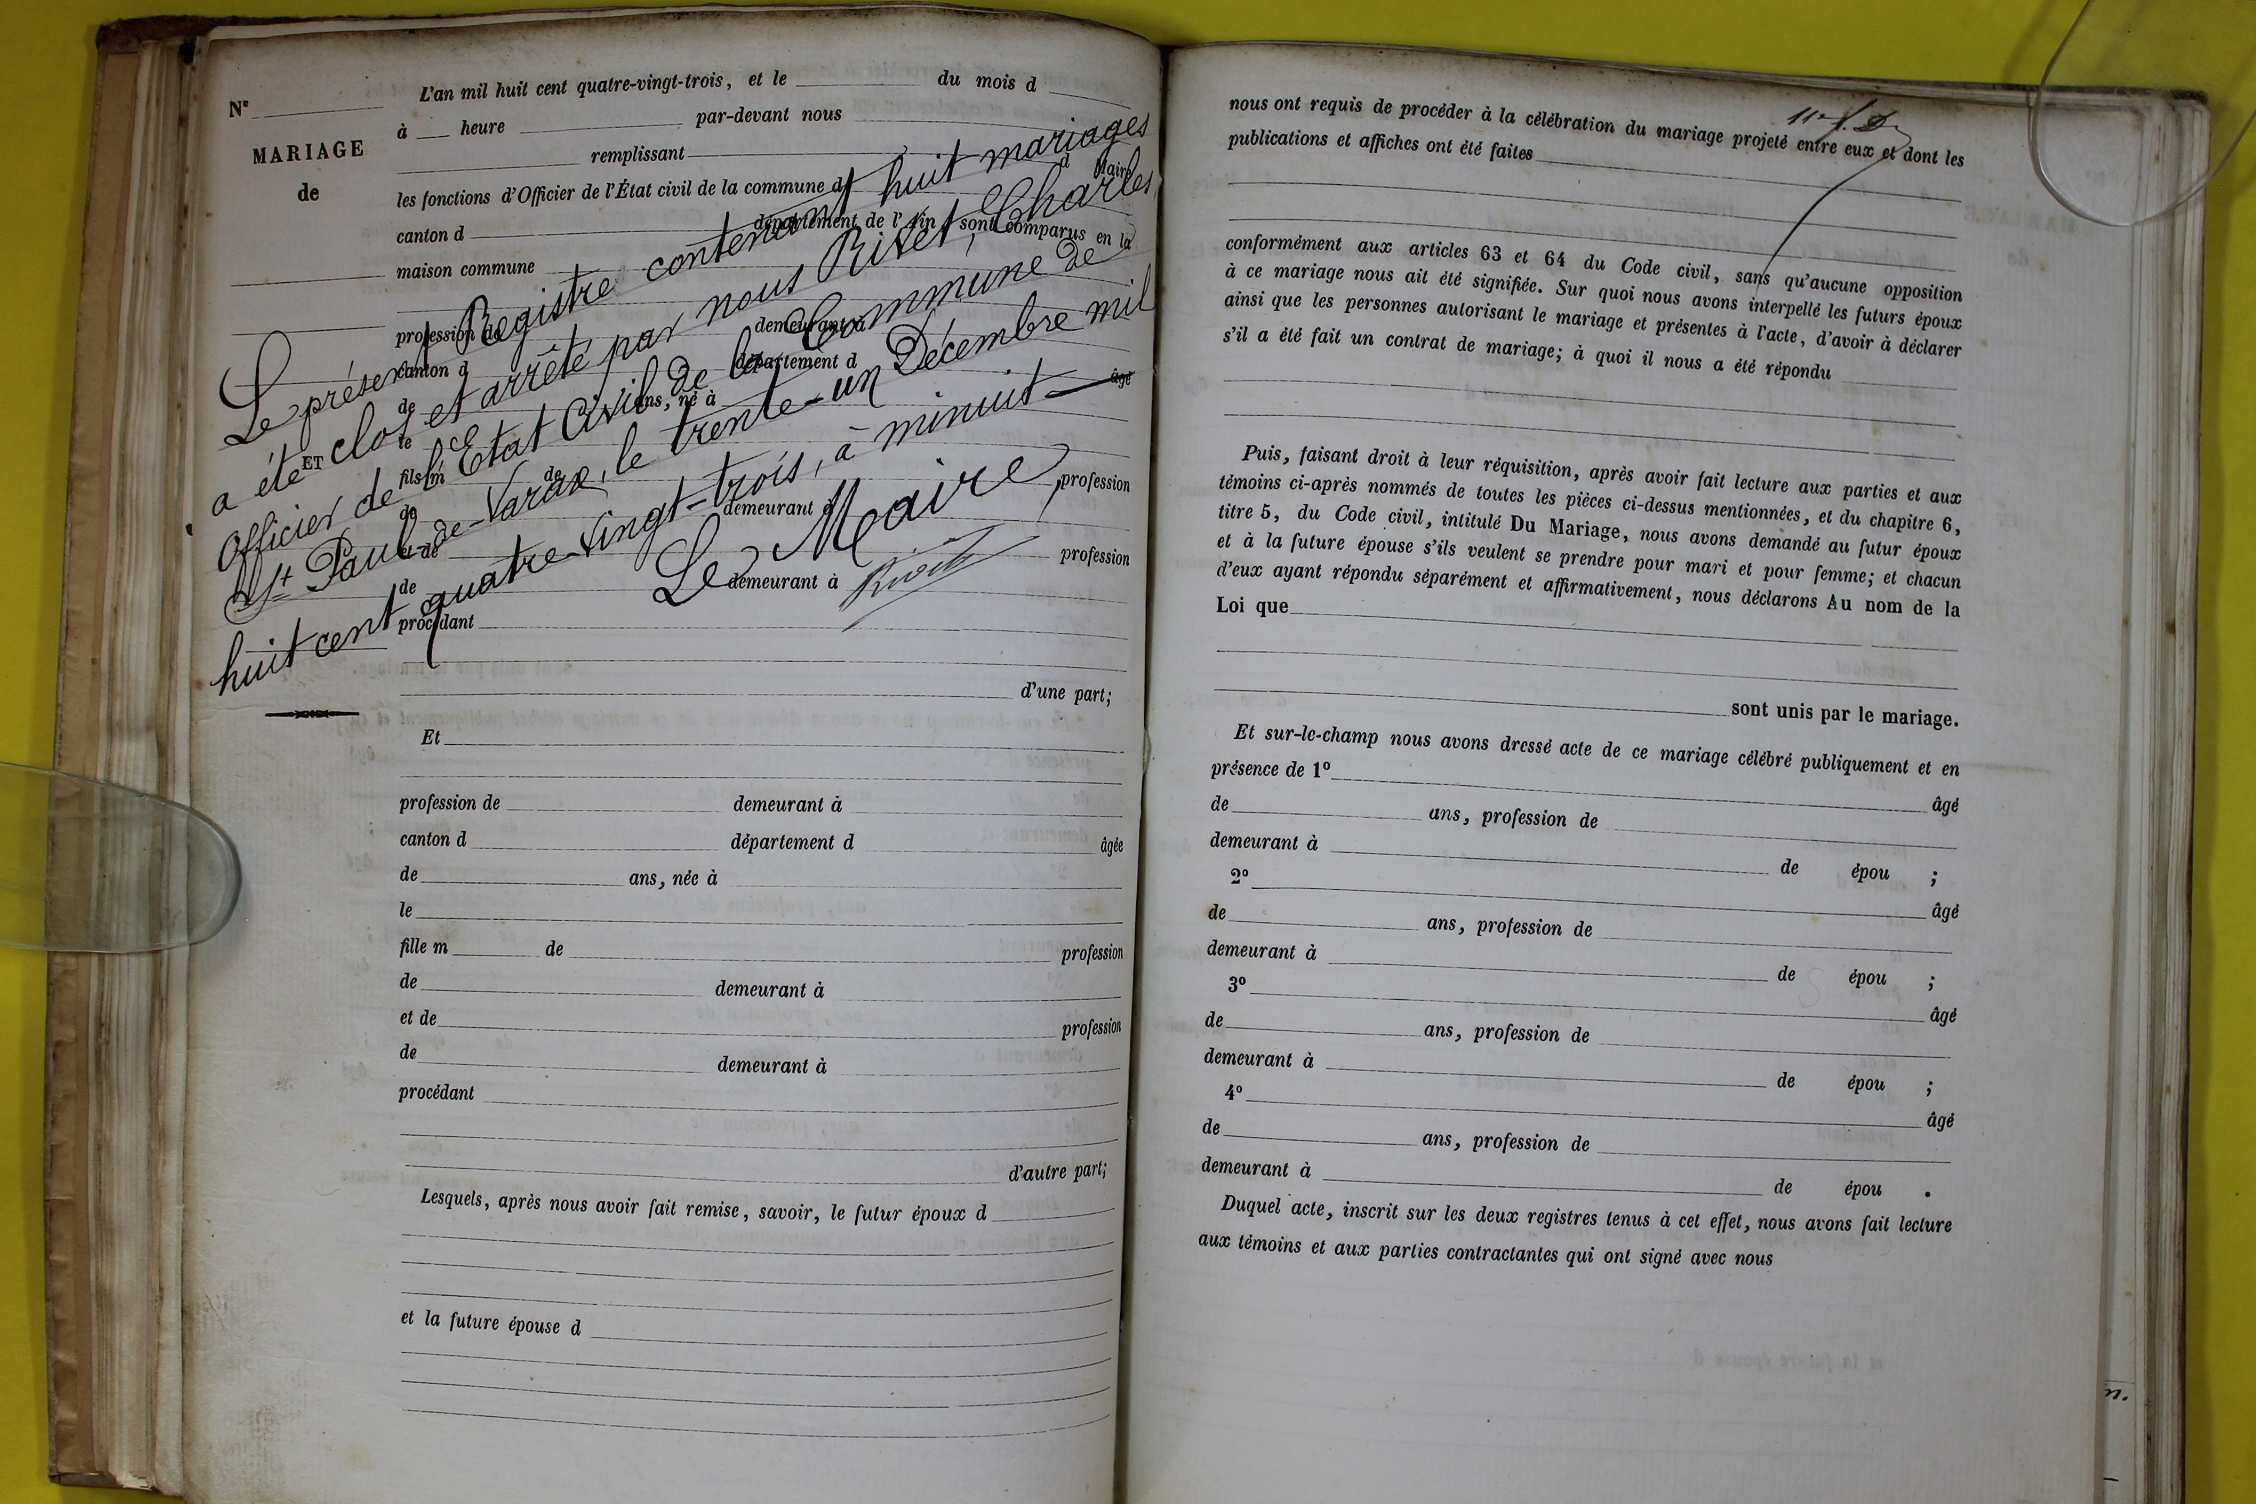 Nº
MARIAGE
de
ET
L'an mil huit cent quatre-vingt-trois, et le du mois d
à heure par-devant nous
remplissant
d Maire
les fonctions d'Officier de l'État civil de la commune d
canton d département de l'Ain, sont comparus en la
maison commune
profession de demeurant à
canton d département d
âgé
de ans, né à
le
fils m de profession
de demeurant à
et de profession
de demeurant à
procédant
d'une part;
Le présent Registre contenant huit mariages
a été clos et arrêté par nous Rivet, Charles
Officier de l'Etat Civil de la Commune de
St Paul-de-Varax, le trente-un Décembre mil
huit cent quatre-vingt-trois, à minuit
Le Maire,
Rivet
Et
profession de demeurant à
canton d département d âgée
de ans, née à
le
fille m de profession
de demeurant à
et de profession
de demeurant à
procédant
d'autre part;
Lesquels, après nous avoir fait remise, savoir, le futur époux d
et la future épouse d
nous ont requis de procéder à la célébration du mariage projeté entre eux et dont les
publications et affiches ont été faites
conformément aux articles 63 et 64 du Code civil, sans qu'aucune opposition
à ce mariage nous ait été signifiée. Sur quoi nous avons interpellé les futurs époux
ainsi que les personnes autorisant le mariage et présentes à l'acte, d'avoir à déclarer
s'il a été fait un contrat de mariage; à quoi il nous a été répondu
Puis, faisant droit à leur réquisition, après avoir fait lecture aux parties et aux
témoins ci-après nommés de toutes les pièces ci-dessus mentionnées, et du chapitre 6,
titre 5, du Code civil, intitulé Du Mariage, nous avons demandé au futur époux
et à la future épouse s'ils veulent se prendre pour mari et pour femme; et chacun
d'eux ayant répondu séparément et affirmativement, nous déclarons Au nom de la
Loi que
sont unis par le mariage.
Et sur-le-champ nous avons dressé acte de ce mariage célébré publiquement et en
présence de 1º âgé
de ans, profession de
demeurant à de épou ;
2º âgé
de ans, profession de
demeurant à de épou ;
3º âgé
de ans, profession de
demeurant à de épou ;
4º âgé
de ans, profession de
demeurant à de épou .
Duquel acte, inscrit sur les deux registres tenus à cet effet, nous avons fait lecture
aux témoins et aux parties contractantes qui ont signé avec nous